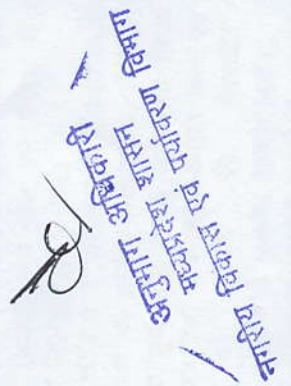 अनुभाग अधिकारी
मध्यप्रदेश शासन
नगरीय विकास एवं पर्यावरण विभाग